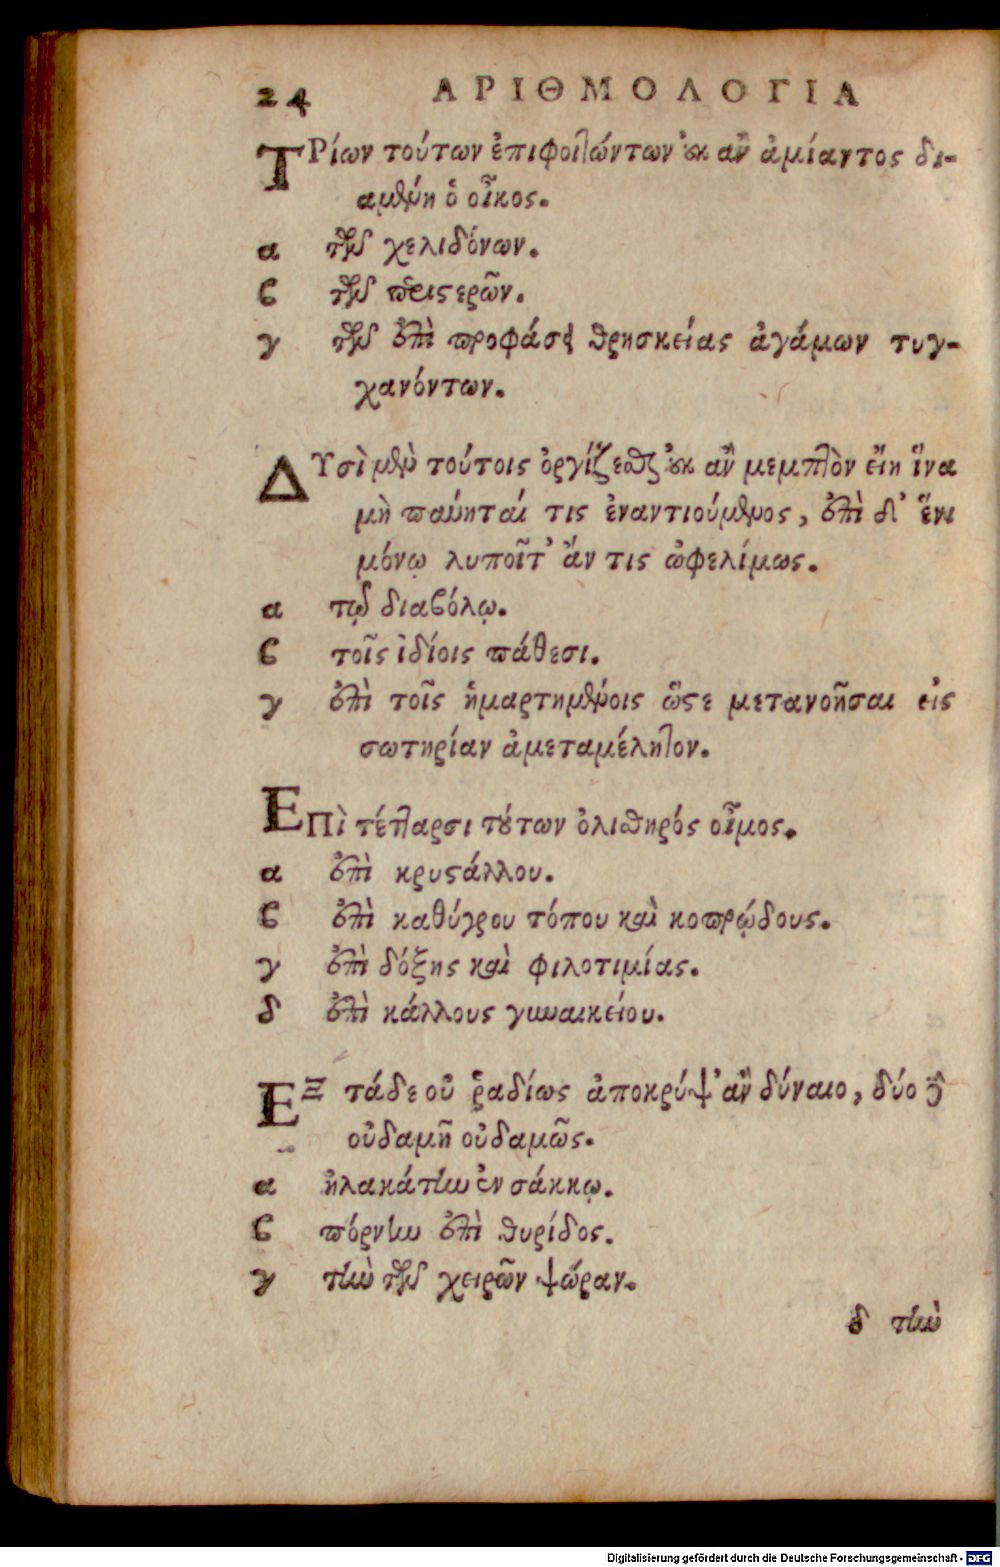 24 ΑΡΙΘΜΟΛΟΓΙΑ
ΤΡίων τούτων ἐπιφοιτώντων οὐκ ἂν ἀμίαντος δι-
αμένῃ ὁ οἶκος.
α τῶν χελιδόνων.
ϐ τῶν περιστερῶν.
γ τῶν ἐπὶ προφάσει θρησκείας ἀγάμων τυγ-
χανόντων.
ΔΥσὶ μὲν τούτοις ὀργίζεσθαι οὐκ ἂν μεμπτὸν εἴη ἵνα
μὴ παύηταί τις ἐναντιούμενος, ἐπὶ δι' ἕνι
μόνῳ λυποῖτ' ἄν τις ὠφελίμως.
α τῷ διαϐόλῳ.
ϐ τοῖς ἰδίοις πάθεσι.
γ ἐπὶ τοῖς ἡμαρτημένοις ὥστε μετανοῆσαι εἰς
σωτηρίαν ἀμεταμέλητον.
ΕΠὶ τέτταρσι τούτων ὀλισθηρός οἶμος.
α ἐπὶ κρυστάλλου.
ϐ ἐπὶ καθύγρου τόπου καὶ κοπρῴδους.
γ ἐπὶ δόξης καὶ φιλοτιμίας.
δ ἐπὶ κάλλους γυναικείου.
ΕΞ τάδε οὐ ῥαδίως ἀποκρύψ' ἂν δύναιο, δύο δὲ
οὐδαμῆ οὐδαμῶς.
α ἠλακάτην ἐν σάκκῳ.
ϐ πόρνην ἐπὶ θυρίδος.
γ τὴν τῶν χειρῶν ψώραν.
δ τὴν
Digitalisierung gefördert durch die Deutsche Forschungsgemeinschaft - DFG